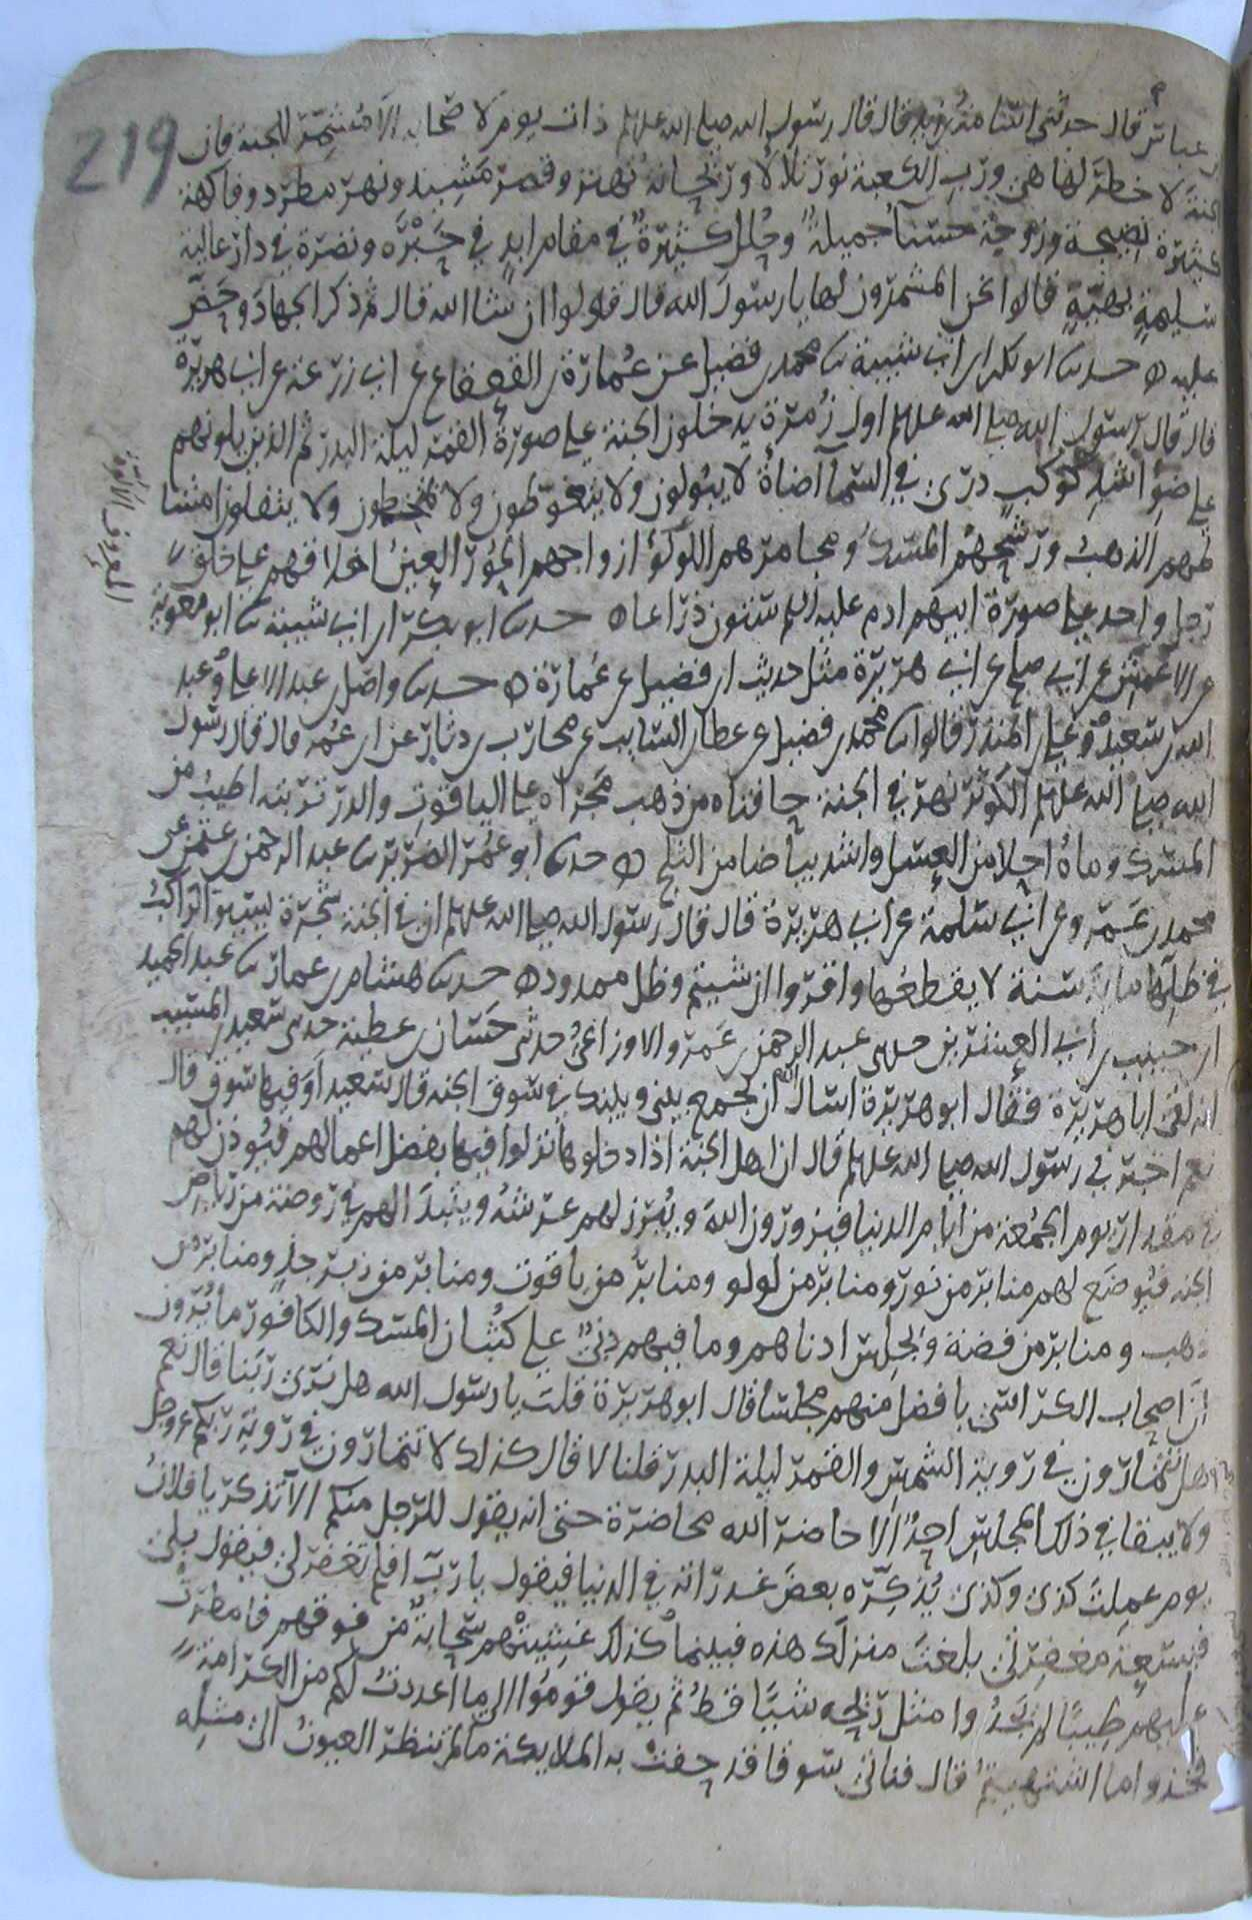 عباس قال حدثني اسامة بن زيد قال قال رسول الله صلى الله عليه وسلم ذات يوم لاصحابه الا مشمر للجنة فان
الجنة لا خطر لها هي ورب الكعبة نور تلالا وريحانة تهتز وقصر مشيد ونهر مطرد وفاكهة
كثيرة نضيجة وزوجة حسنا جميلة وحلل كثيرة في مقام ابد في حبرة ونضرة في دار عالية
سليمة بهية قالوا نحن المشمرون لها يا رسول الله قال قولوا ان شا الله قال ثم ذكر الجهاد وحض
عليه ه حدثنا ابو بكر ابن ابي شيبة ثنا محمد بن فضيل عن عمارة بن القعقاع عن ابي زرعة عن ابي هريرة
قال قال رسول الله صلى الله عليه وسلم اول زمرة يدخلون الجنة على صورة القمر ليلة البدر ثم الذين يلونهم
على ضو اشد كوكب دري في السما اضاة لا يبولون ولا يتغوطون ولا يمتخطون ولا يتفلون امشا
طهم الذهب ورشحهم المسك ومجامرهم اللولو ازواجهم الحور العين اخلاقهم على خلق
رجل واحد على صورة ابيهم ادم عليه السلم ستون ذراعا ه حدثنا ابو بكر ابن ابي شيبة ثنا ابو معوية
عن الاعمش عن ابي صالح عن ابي هريرة مثل حديث ابن فضيل عن عمارة ه حدثنا واصل بن عبد الاعلى وعبد
الله بن سعيد وعلي بن المنذر قالوا ثنا محمد بن فضيل عن عطا بن السايب عن محارب بن دثار عن ابن عمر قال قال رسول
الله صلى الله عليه وسلم الكوثر نهر في الجنة حافتاه من ذهب مجراه على الياقوت والدر تربته اطيب من
المسك وماه احلا من العسل واشد بياضا من الثلج ه حدثنا ابو عمر الضرير ثنا عبد الرحمن بن عثمن عن
محمد بن عمرو عن ابي سلمة عن ابي هريرة قال قال رسول الله صلى الله عليه وسلم ان في الجنة شجرة يسير الراكب
في ظلها ماية سنة لا يقطعها واقروا ان شيتم وظل ممدود ه حدثنا هشام بن عمار ثنا عبد الحميد
ابن حبيب بن ابي العشرين حدثني عبد الرحمن بن عمرو الاوزاعي حدثني حسان بن عطية حدثني سعيد بن المسيب
انه لقى ابا هريرة فقال ابو هريرة اسال الله ان يجمع بيني وبينك في سوق الجنة قال سعيد او فيها سوق قال
نعم اخبرني رسول الله صلى الله عليه وسلم قال ان اهل الجنة اذا دخلوها نزلوا فيها بفضل اعمالهم فيوذن لهم
في مقدار يوم الجمعة من ايام الدنيا فيزورون الله ويبرز لهم عرشه ويتبدا لهم في روضة من رياض
الجنة فيوضع لهم منابر من نور ومنابر من لولو ومنابر من ياقوت ومنابر من زبرجد ومنابر من
ذهب ومنابر من فضة ويجلس ادناهم وما فيهم دني على كثبان المسك والكافور ما يرون
ان اصحاب الكراسي بافضل منهم مجلسا قال ابو هريرة قلت يا رسول الله هل نرى ربنا قال نعم
وهل تتمارون في روية الشمس والقمر ليلة البدر قلنا لا قال كذلك لا تتمارون في روية ربكم عز وجل
ولا يبقا في ذلك المجلس احد الا حاضره الله محاضرة حتى انه يقول للرجل منكم الا تذكر يا فلان
يوم عملت كذى وكذى يذكره بعض غدراته في الدنيا فيقول يا رب افلم تغفر لي فيقول بلى
فبسعة مغفرتي بلغت منزلك هذه فبينما كذلك غشيتهم سحابة من فوقهم فامطرت
عليهم طيبا لم يجدوا مثل ريحه شيا قط ثم يقول قوموا الى ما اعددت لكم من الكرامة
فخذوا ما اشتهيتم قال فناتي سوقا قد حفت به الملايكة ما لم تنظر العيون الى مثله
219